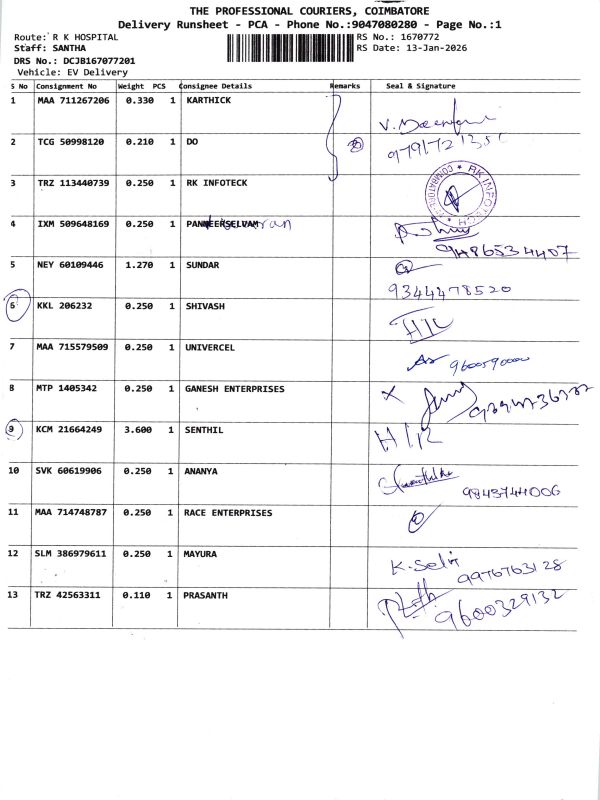 THE PROFESSIONAL COURIERS, COIMBATORE
Delivery Runsheet - PCA - Phone No.:9047080280 - Page No.:1
Route: R K HOSPITAL
RS No.: 1670772
Staff: SANTHA
RS Date: 13-Jan-2026
DRS No.: DCJB167077201
Vehicle: EV Delivery
S No Consignment No Weight PCS Consignee Details Remarks Seal & Signature
1 MAA 711267206 0.330 1 KARTHICK
2 TCG 50998120 0.210 1 DO
3 TRZ 113440739 0.250 1 RK INFOTECK
RK INFOTECH * COIMBATORE *
4 IXM 509648169 0.250 1 PANNEERSELVAM
9486534407
5 NEY 60109446 1.270 1 SUNDAR
9344478520
6 KKL 206232 0.250 1 SHIVASH
7 MAA 715579509 0.250 1 UNIVERCEL
9600590000
8 MTP 1405342 0.250 1 GANESH ENTERPRISES
X
9 KCM 21664249 3.600 1 SENTHIL
10 SVK 60619906 0.250 1 ANANYA
9843744006
11 MAA 714748787 0.250 1 RACE ENTERPRISES
12 SLM 386979611 0.250 1 MAYURA
K. Selvi
9976763128
13 TRZ 42563311 0.110 1 PRASANTH
9600329132